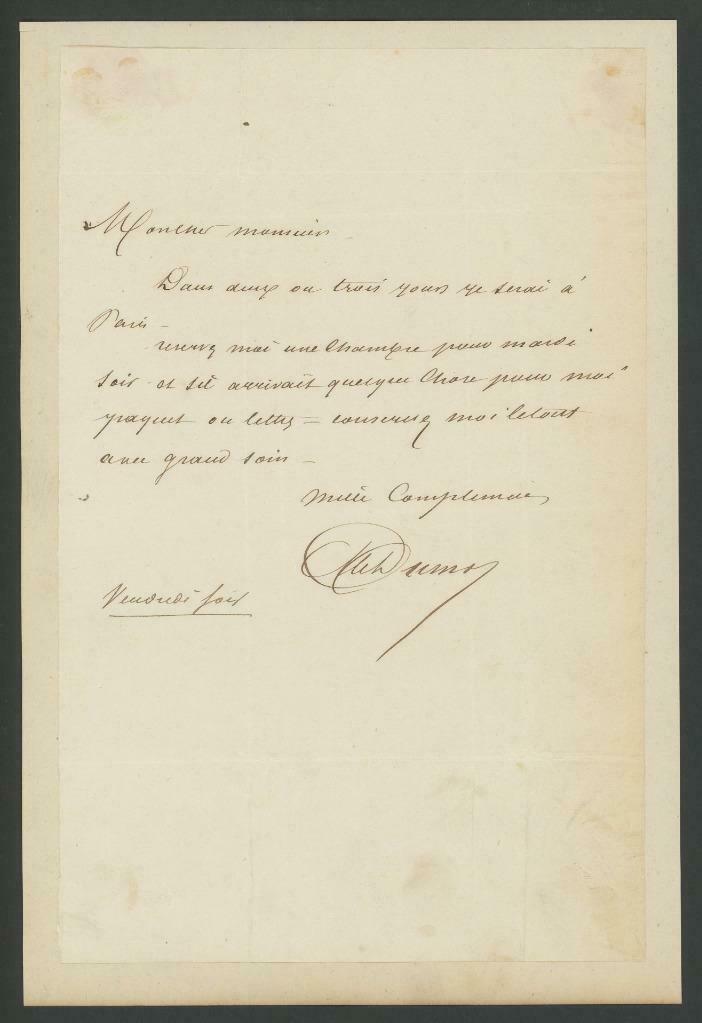 Mon cher monsieur
Dans deux ou trois jours je serai à
Paris –
reservez moi une chambre pour mardi
soir – et s'il arrivait quelque chose pour moi
paquet ou lettre = conservez moi le tout
avec grand soin –
mille compliments
Alex Dumas
Vendredi soir